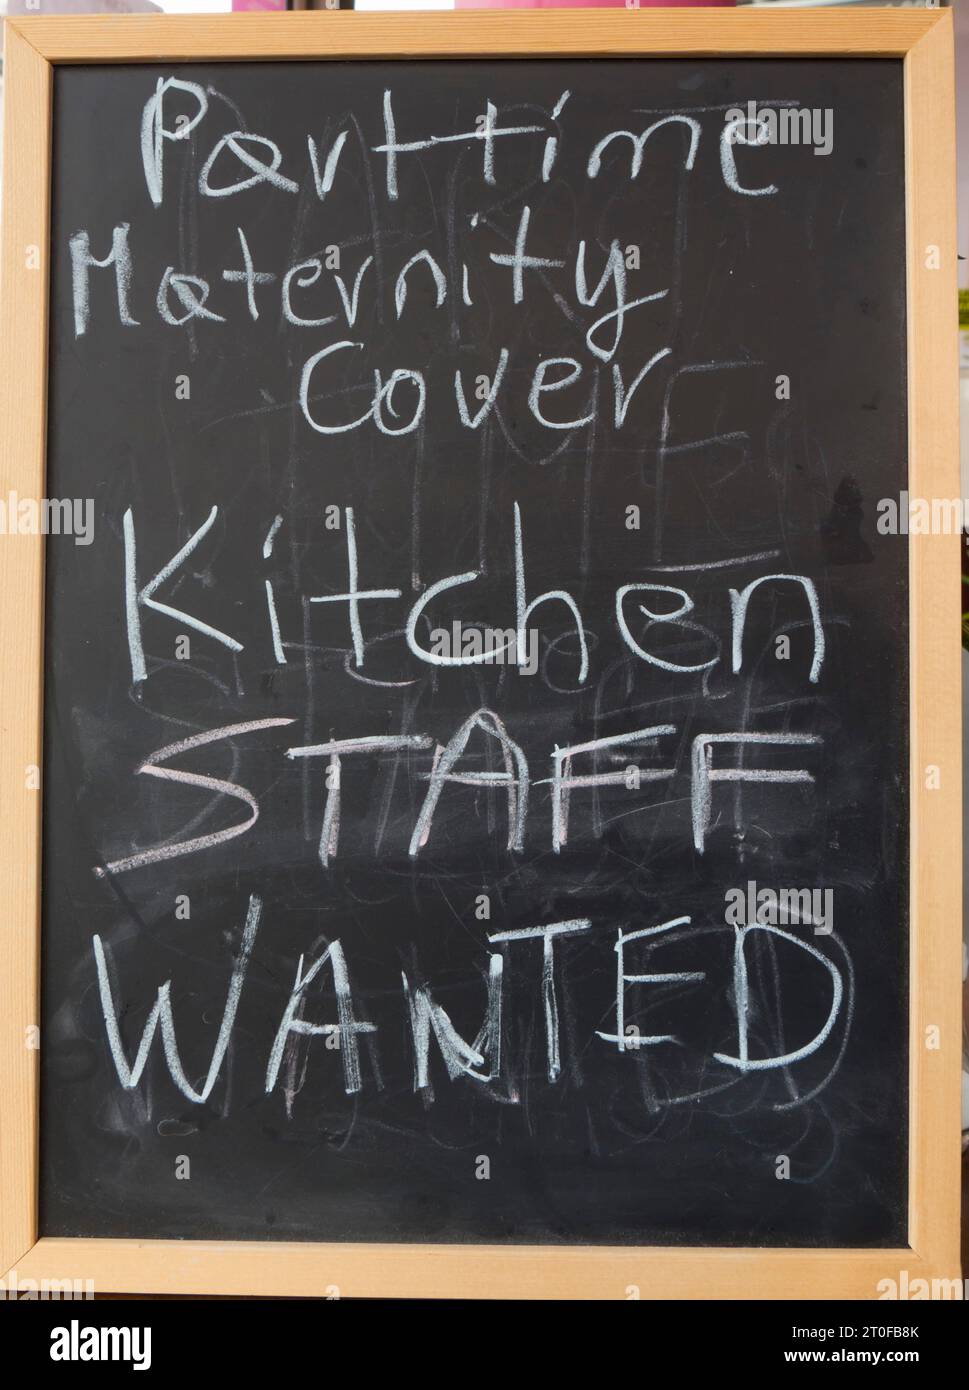 Parttime
Maternity
Cover
Kitchen
STAFF
WANTED
alamy
alamy
Image ID: 2T0FB8K
www.alamy.com